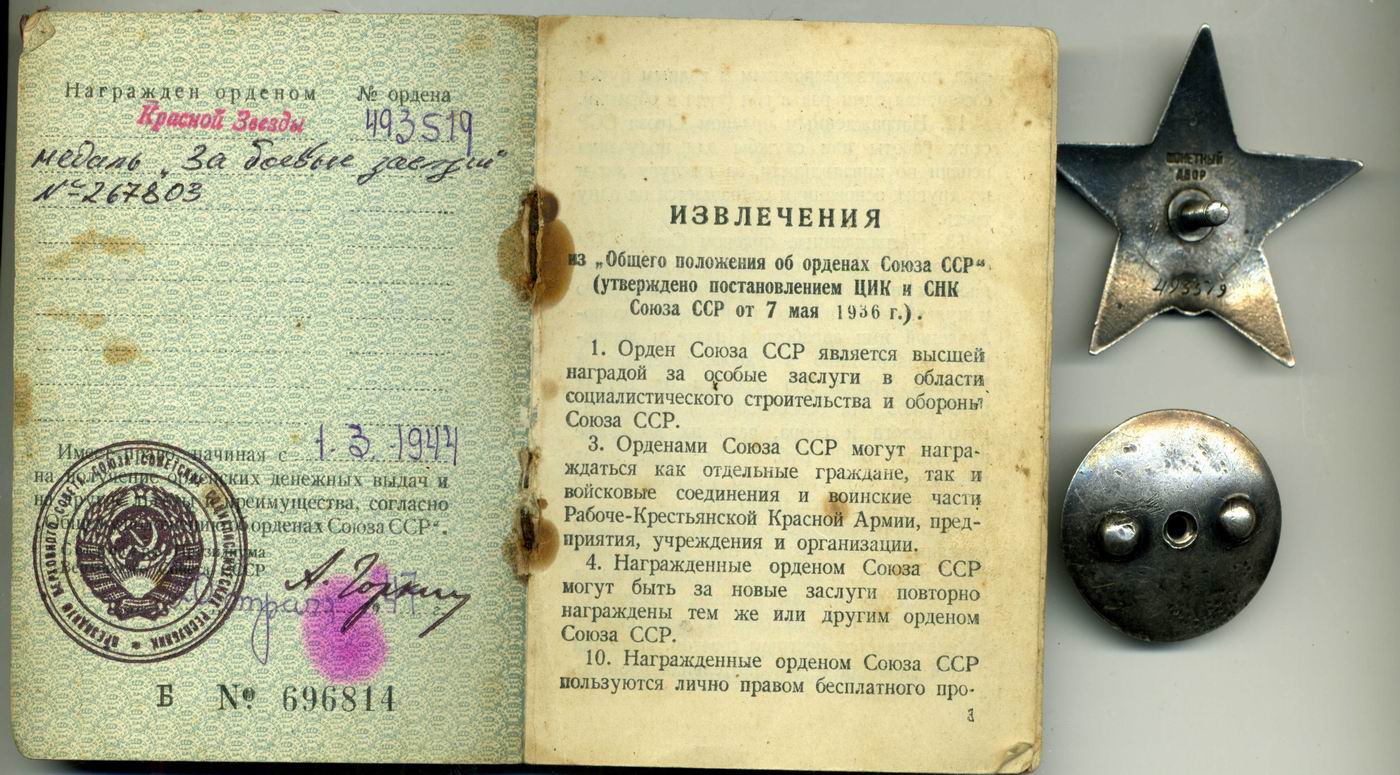 Награжден орденом № ордена
Красной Звезды 493519
медаль „За боевые заслуги"
№ 267803
Имеет право, начиная с 1.3.1944
на получение орденских денежных выдач и
на другие льготы и преимущества, согласно
"Общему положению об орденах Союза ССР".
Президиума
ССР
А. Горкин
Б № 696814
ИЗВЛЕЧЕНИЯ
из „Общего положения об орденах Союза ССР"
(утверждено постановлением ЦИК и СНК
Союза ССР от 7 мая 1936 г.).
1. Орден Союза ССР является высшей
наградой за особые заслуги в области
социалистического строительства и обороны
Союза ССР.
3. Орденами Союза ССР могут награ-
ждаться как отдельные граждане, так и
войсковые соединения и воинские части
Рабоче-Крестьянской Красной Армии, пред-
приятия, учреждения и организации.
4. Награжденные орденом Союза ССР
могут быть за новые заслуги повторно
награждены тем же или другим орденом
Союза ССР.
10. Награжденные орденом Союза ССР
пользуются лично правом бесплатного про-
3
МОНЕТНЫЙ
ДВОР
493519